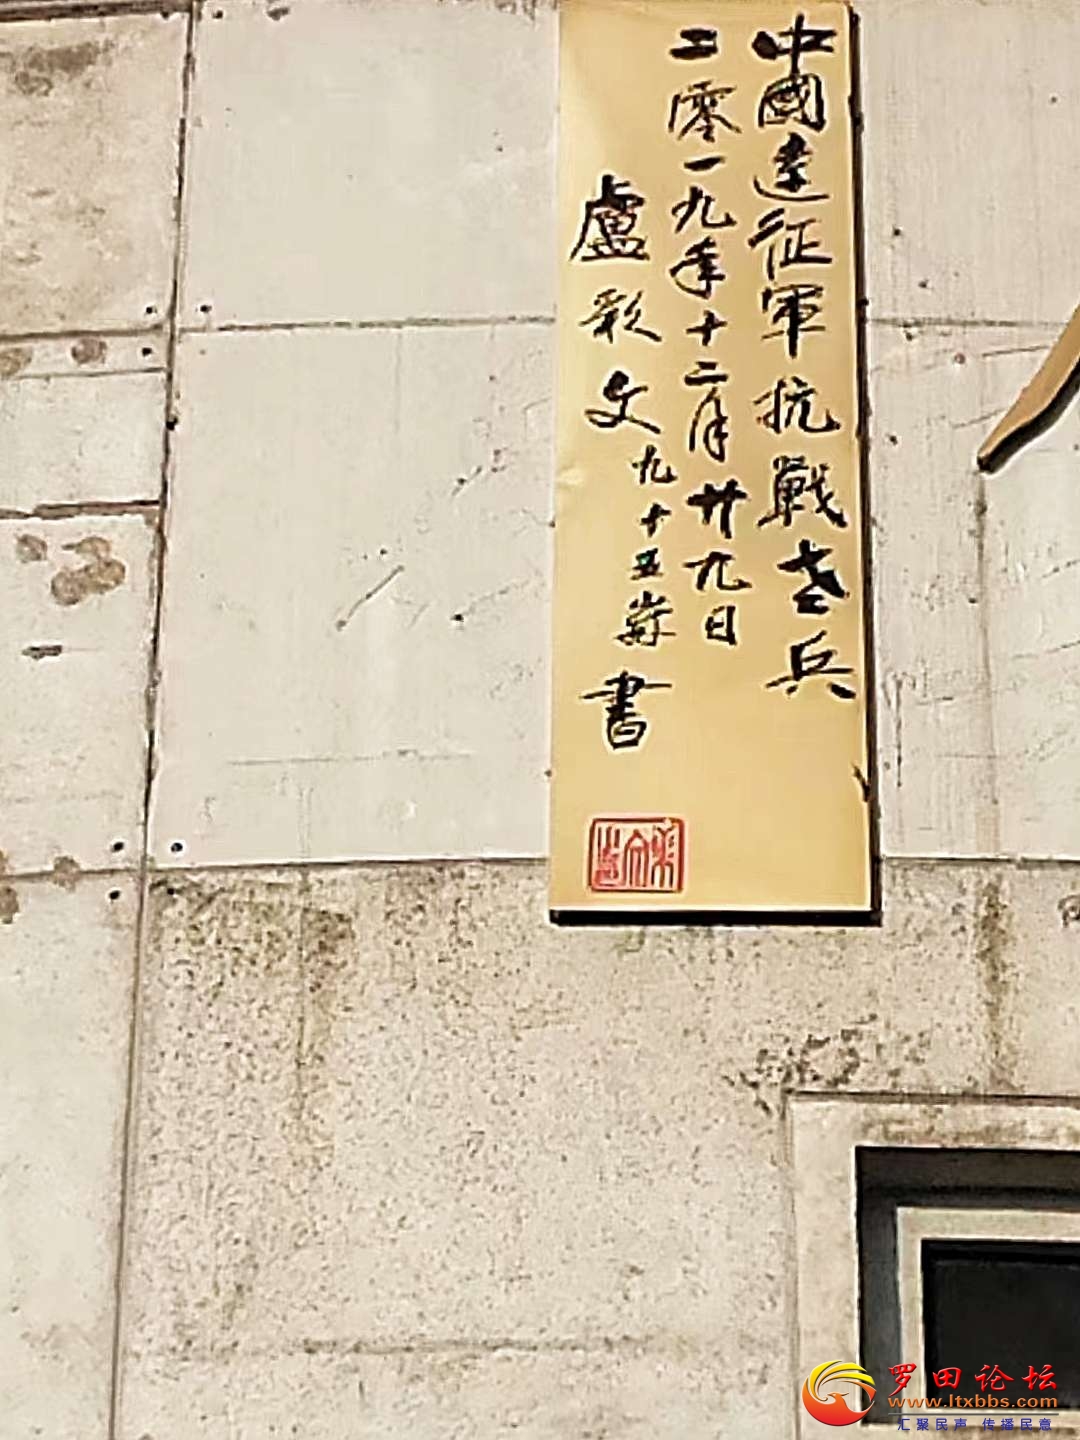 中國遠征軍抗戰老兵
二零一九年十二月廿九日
盧彩文九十五歲書
罗田论坛
www.ltxbbs.com
汇聚民声 传播民意